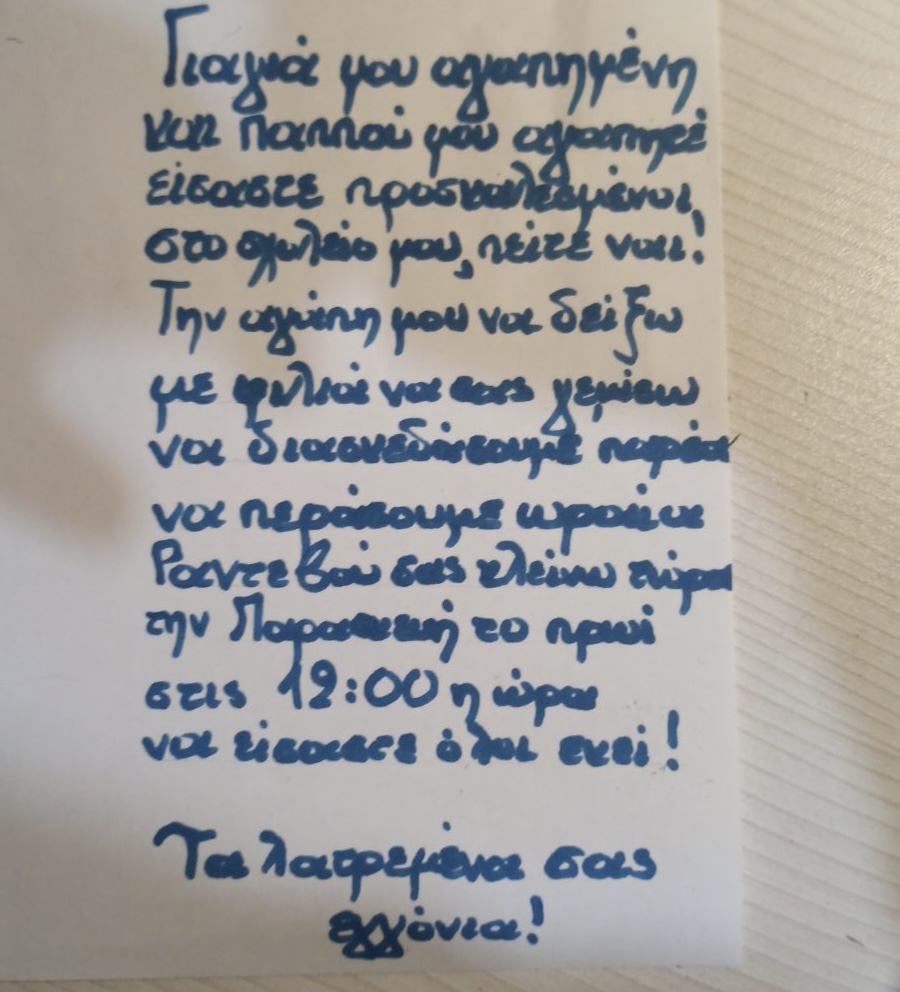 Γιαγιά μου αγαπημένη
και παππού μου αγαπητέ
είσαστε προσκαλεσμένοι,
στο σχολείο μου, πείτε ναι!
Την αγάπη μου να δείξω
με φιλιά να σας γεμίσω
να διασκεδάσουμε παρέα
να περάσουμε ωραία
Ραντεβού σας κλείνω τώρα
την Παρασκευή το πρωί
στις 12:00 η ώρα
να είσαστε όλοι εκεί!
Τα λατρεμένα σας
εγγόνια!